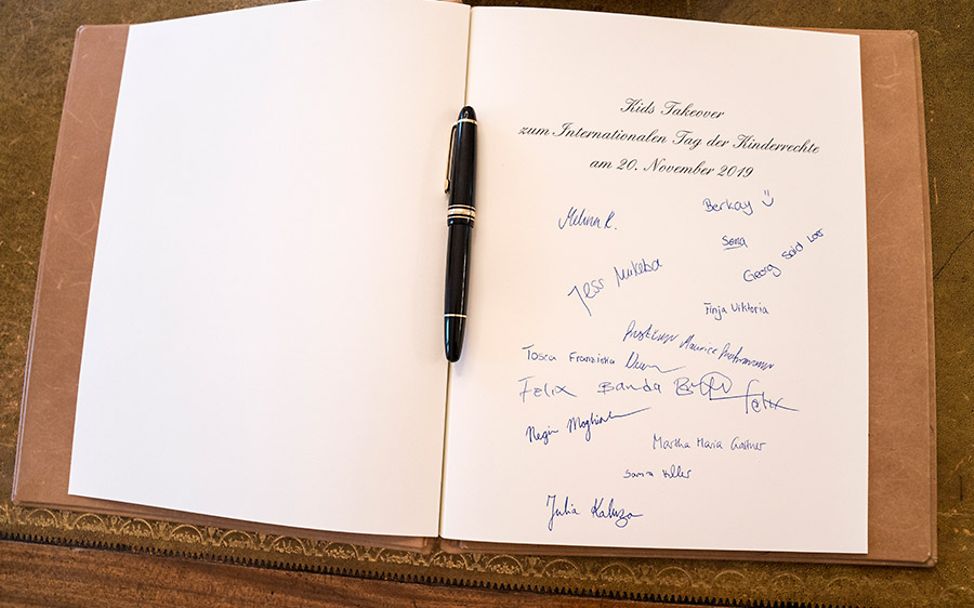 Kids Takeover
zum Internationalen Tag der Kinderrechte
am 20. November 2019
Berkay
Melina R.
Sena
Georg Said
Jess Mukeba
Finja Viktoria
Maurice
Tosca Franziska
Felix Banda
Felix
Negin
Martha Maria
Julia Kaluza